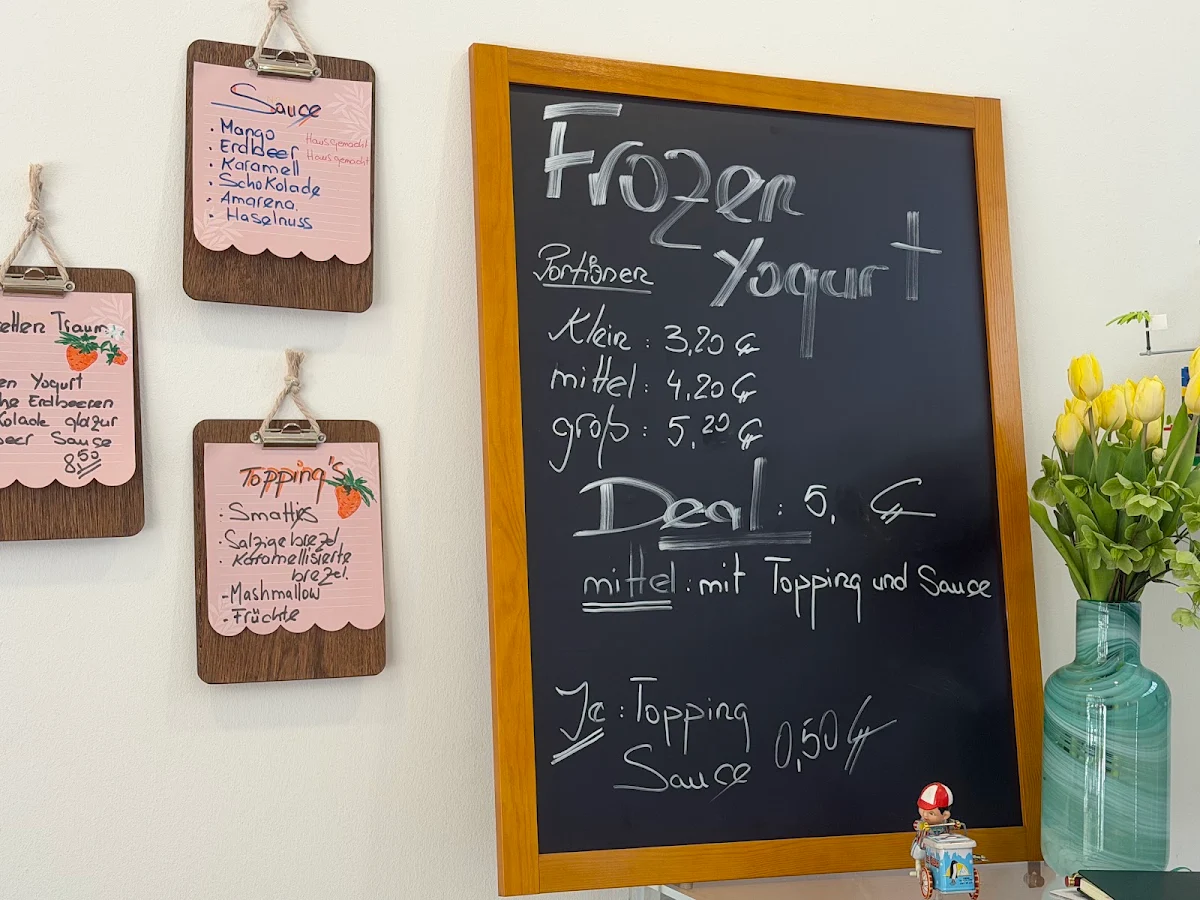 Sauce
· Mango Hausgemacht
· Erdbeer Hausgemacht
· Karamell
· Schokolade
· Amarena
· Haselnuss
Traum
en Yogurt
he Erdbeeren
kolade glazur
eer Sauce
8,50
Topping's
· Smarties
· Salzige brezel
· Karamellisierte
brezel.
- Mashmallow
- Früchte
Frozen
Yogurt
Portionen
Klein : 3,20 €
mittel : 4,20 €
groß : 5,20 €
Deal : 5, €
mittel : mit Topping und Sauce
Je : Topping
Sauce 0,50 €